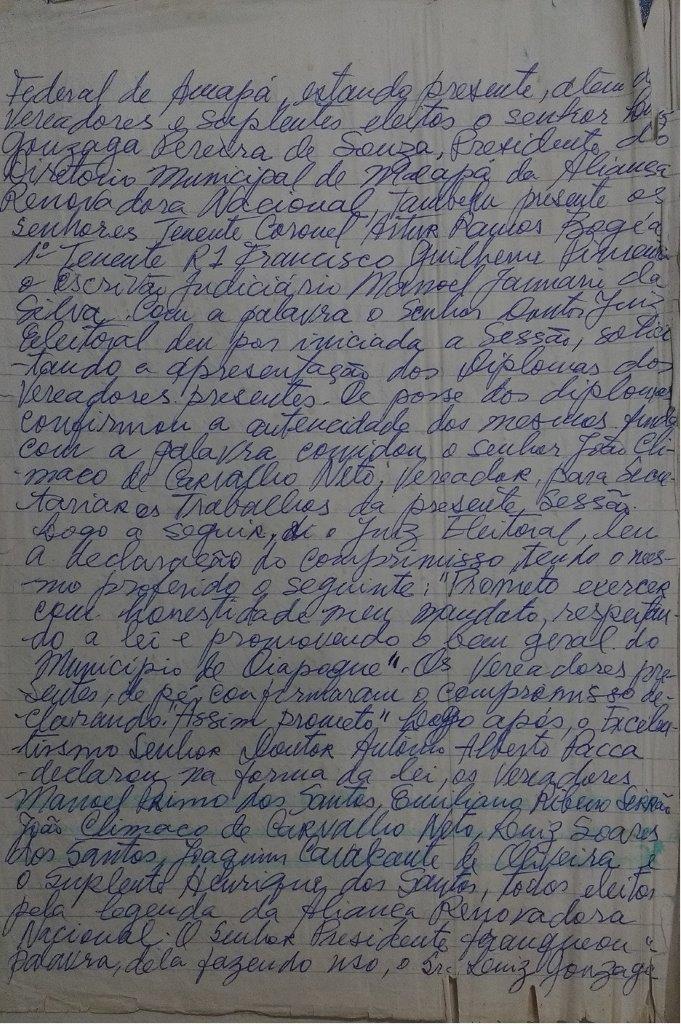 Federal de Amapá, estando presente, além d
Vereadores e Suplentes eleitos o senhor Luis
Gonzaga Pereira de Souza, Presidente do
Diretório Municipal de Macapá da Aliança
Renovadora Nacional, Também presente os
Senhores Tenente Coronel Artur Ramos Bogéa
1º Tenente R1 Francisco Guilherme Pimenta
o escrivão Judiciário Manoel Januari da
Silva. Com a palavra o Senhor Doutor Juiz
Eleitoral deu por iniciada a Sessão, solici
-tando a apresentação dos Diplomas dos
Vereadores presentes. De posse dos diplomas
confirmou a autencidade dos mesmos, ainda
com a palavra convidou o senhor João Cli-
maco de Carvalho Neto, Vereador, para Secre-
tariar os Trabalhos da presente Sessão.
Logo a Seguir, o Juiz Eleitoral, leu
a declaração do comprimisso, tendo o mes-
mo proferido o seguinte: "Prometo exercer
com honestidade meu mandato, respeitan-
do a lei e promovendo o bem geral do
Município de Oiapoque". Os Vereadores pre-
sentes, de pé, conformaram o compromisso de-
clarando: "Assim prometo" Logo após, o Excelen-
tissmo Senhor Doutor Antonio Alberto Pacca
declarou na forma da lei, os Vereadores
Manoel Primo dos Santos, Emiliano Ribeiro Serrão
João Climaco de Carvalho Neto, Luiz Soares
dos Santos, Joaquim Cavalcante de Oliveira e
o Suplente Henrique dos Santos, todos eleitos
pela legenda da Aliança Renovadora
Nacional. O Senhor Presidente franqueou a
palavra, dela fazendo uso, o Sr. Luiz Gonzaga